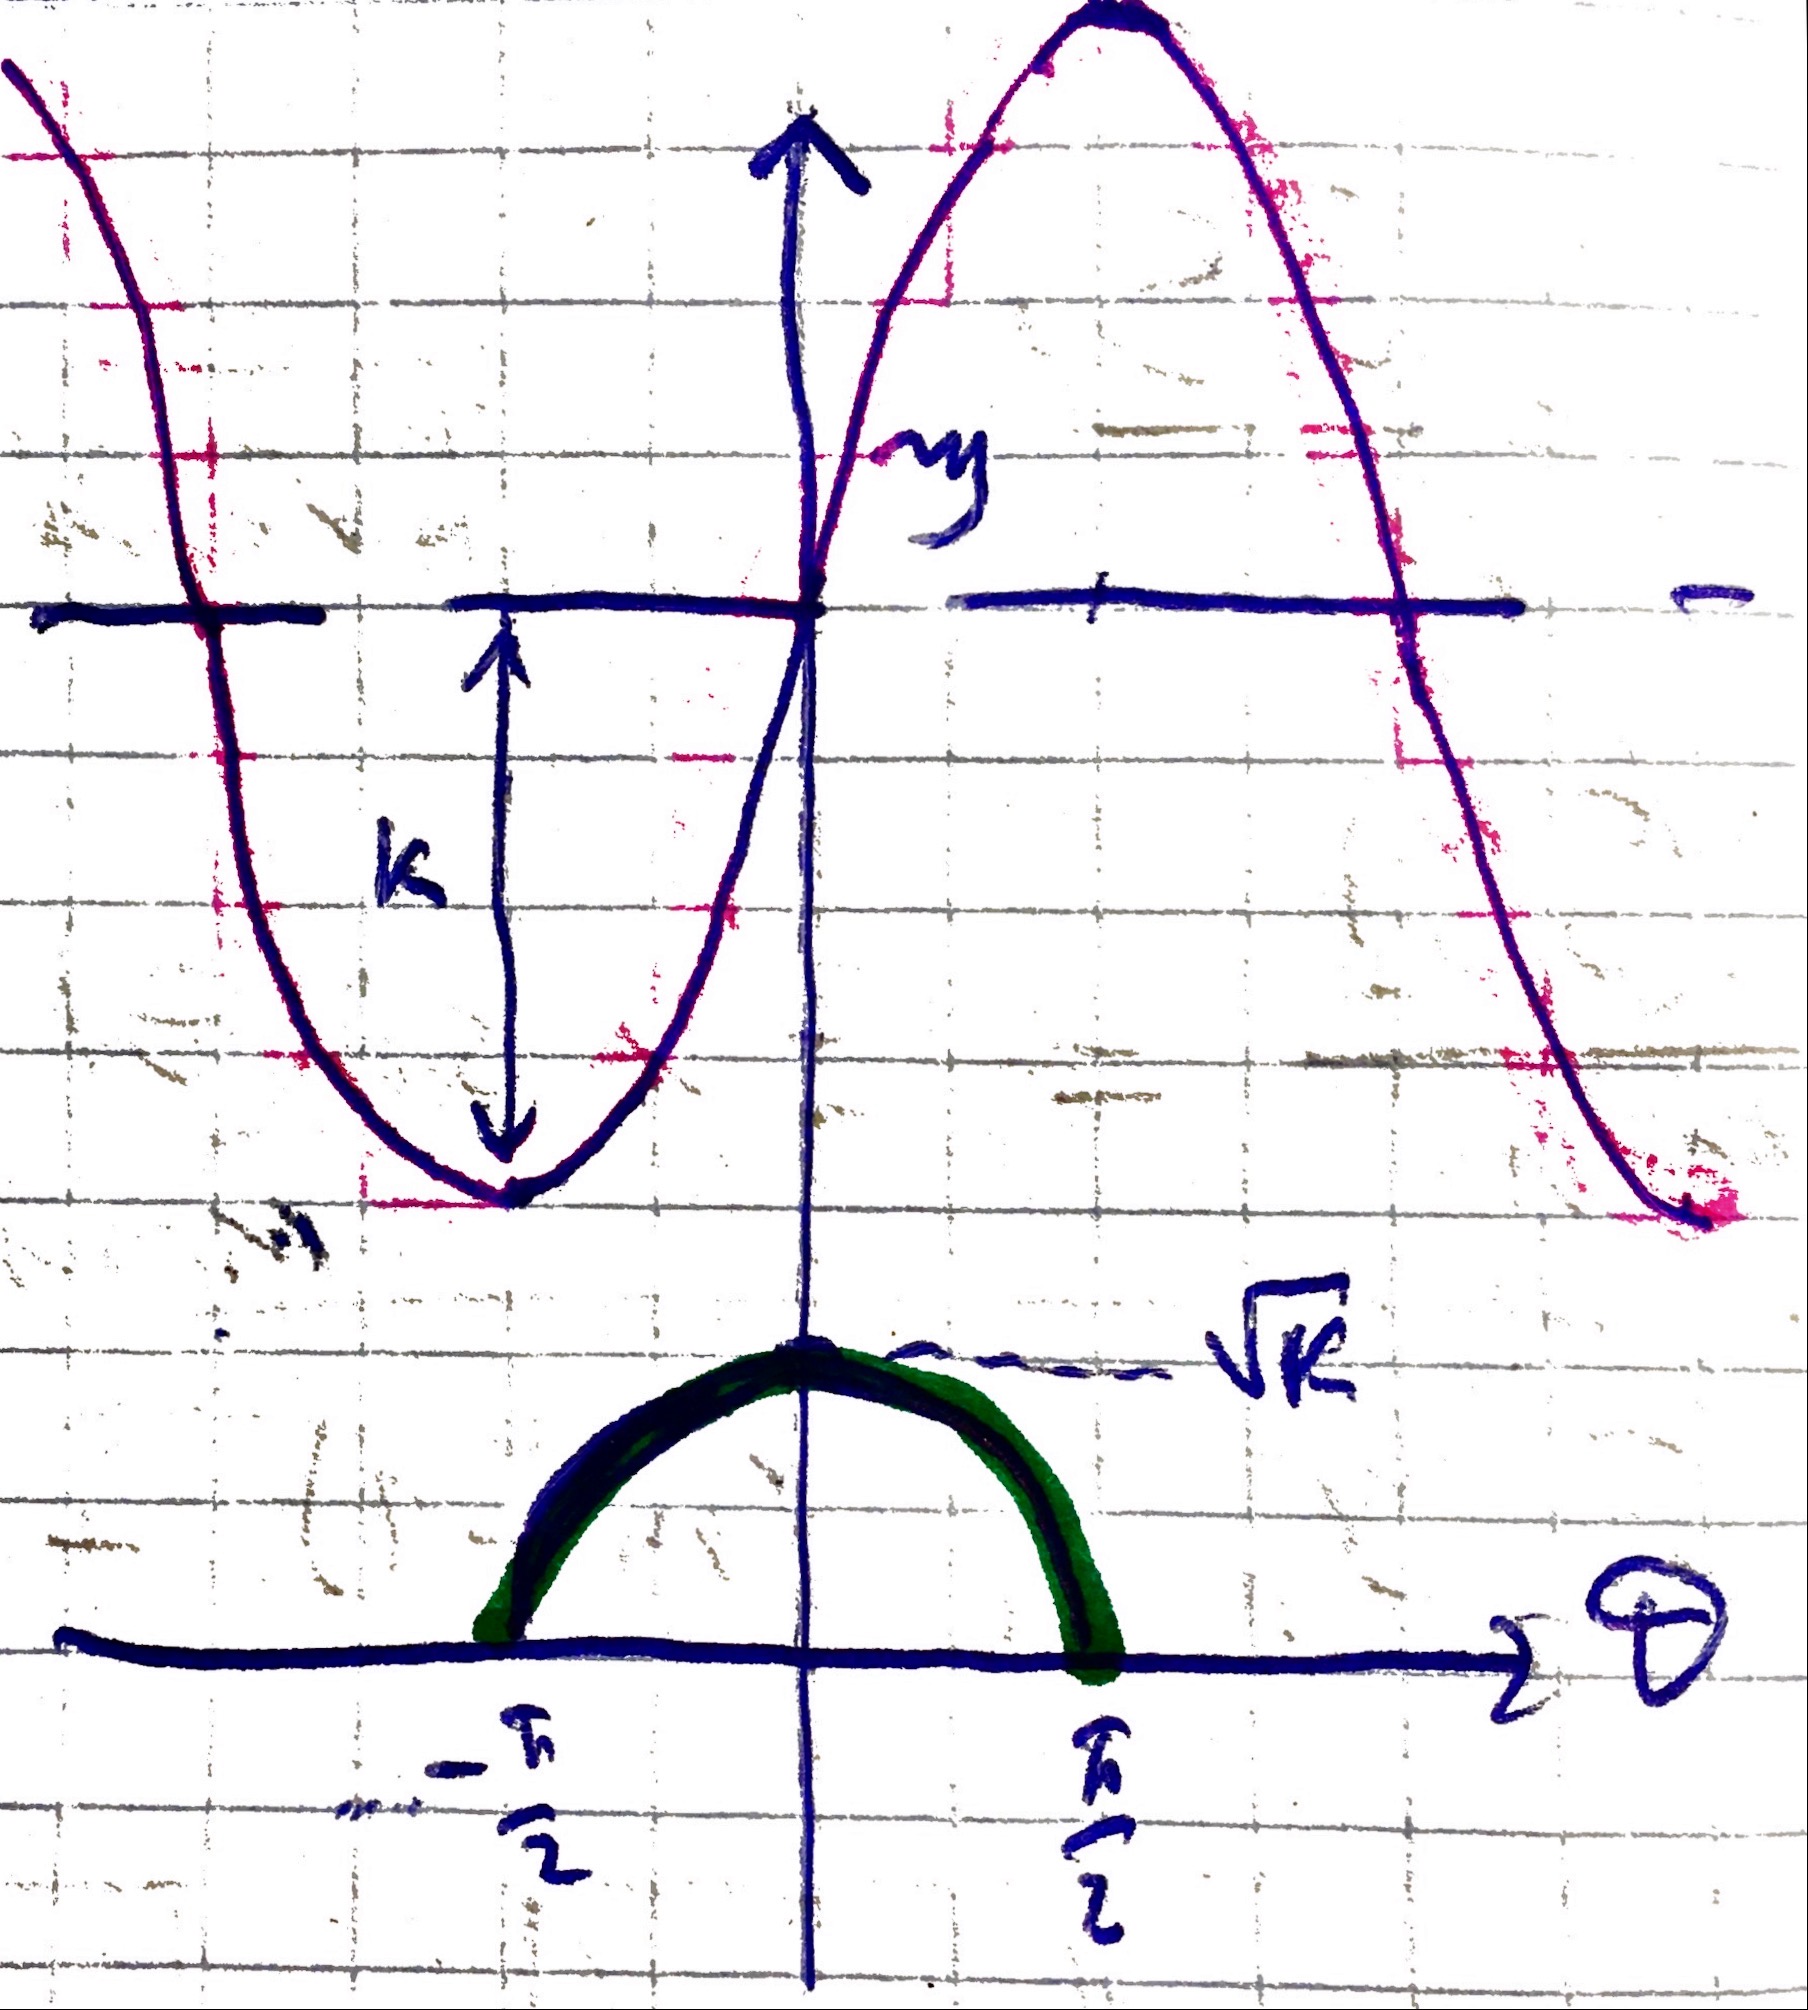 y
K
√K
θ
-π/2 π/2